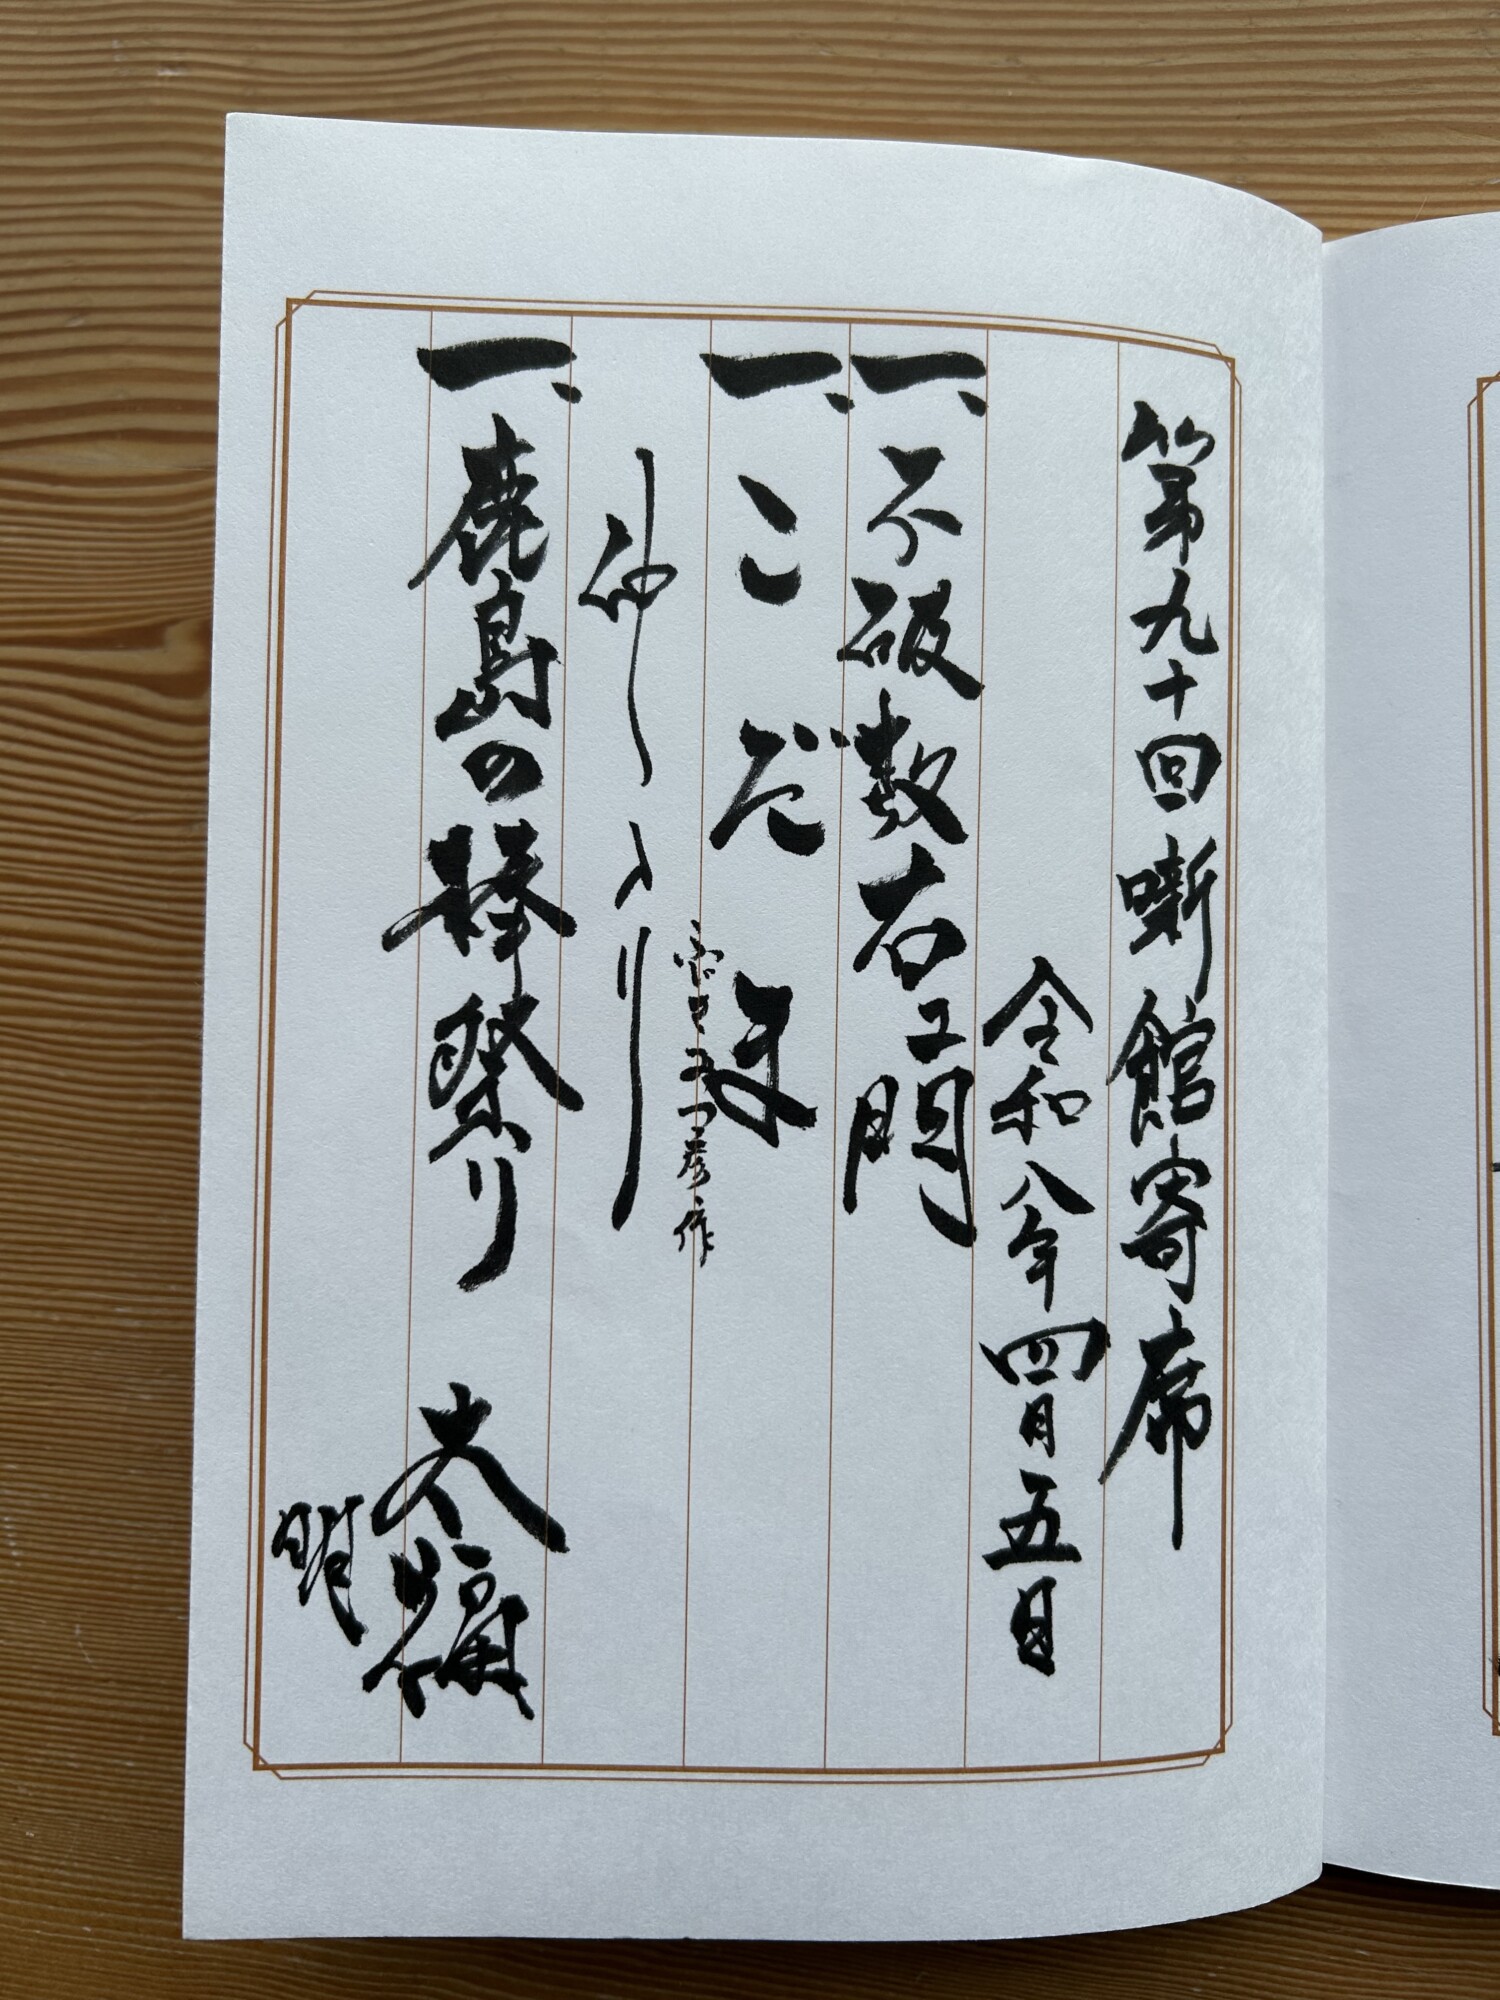 第九十回噺館寄席
令和八年四月五日
一、不破数右エ門
一、こだま
作
仲入り
一、鹿島の棒祭り
太福
明